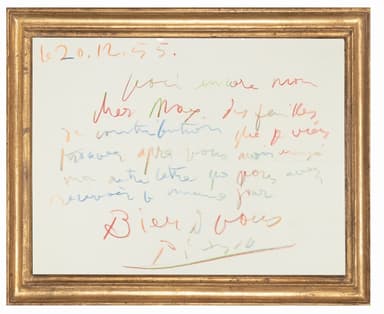 le 20.12.55.
Voici encore mon
cher Max, des feuilles
de contributions que je viens
trouver après vous avoir envoyé
autre lettre que vous avez
le même jour
Bien à vous
Picasso